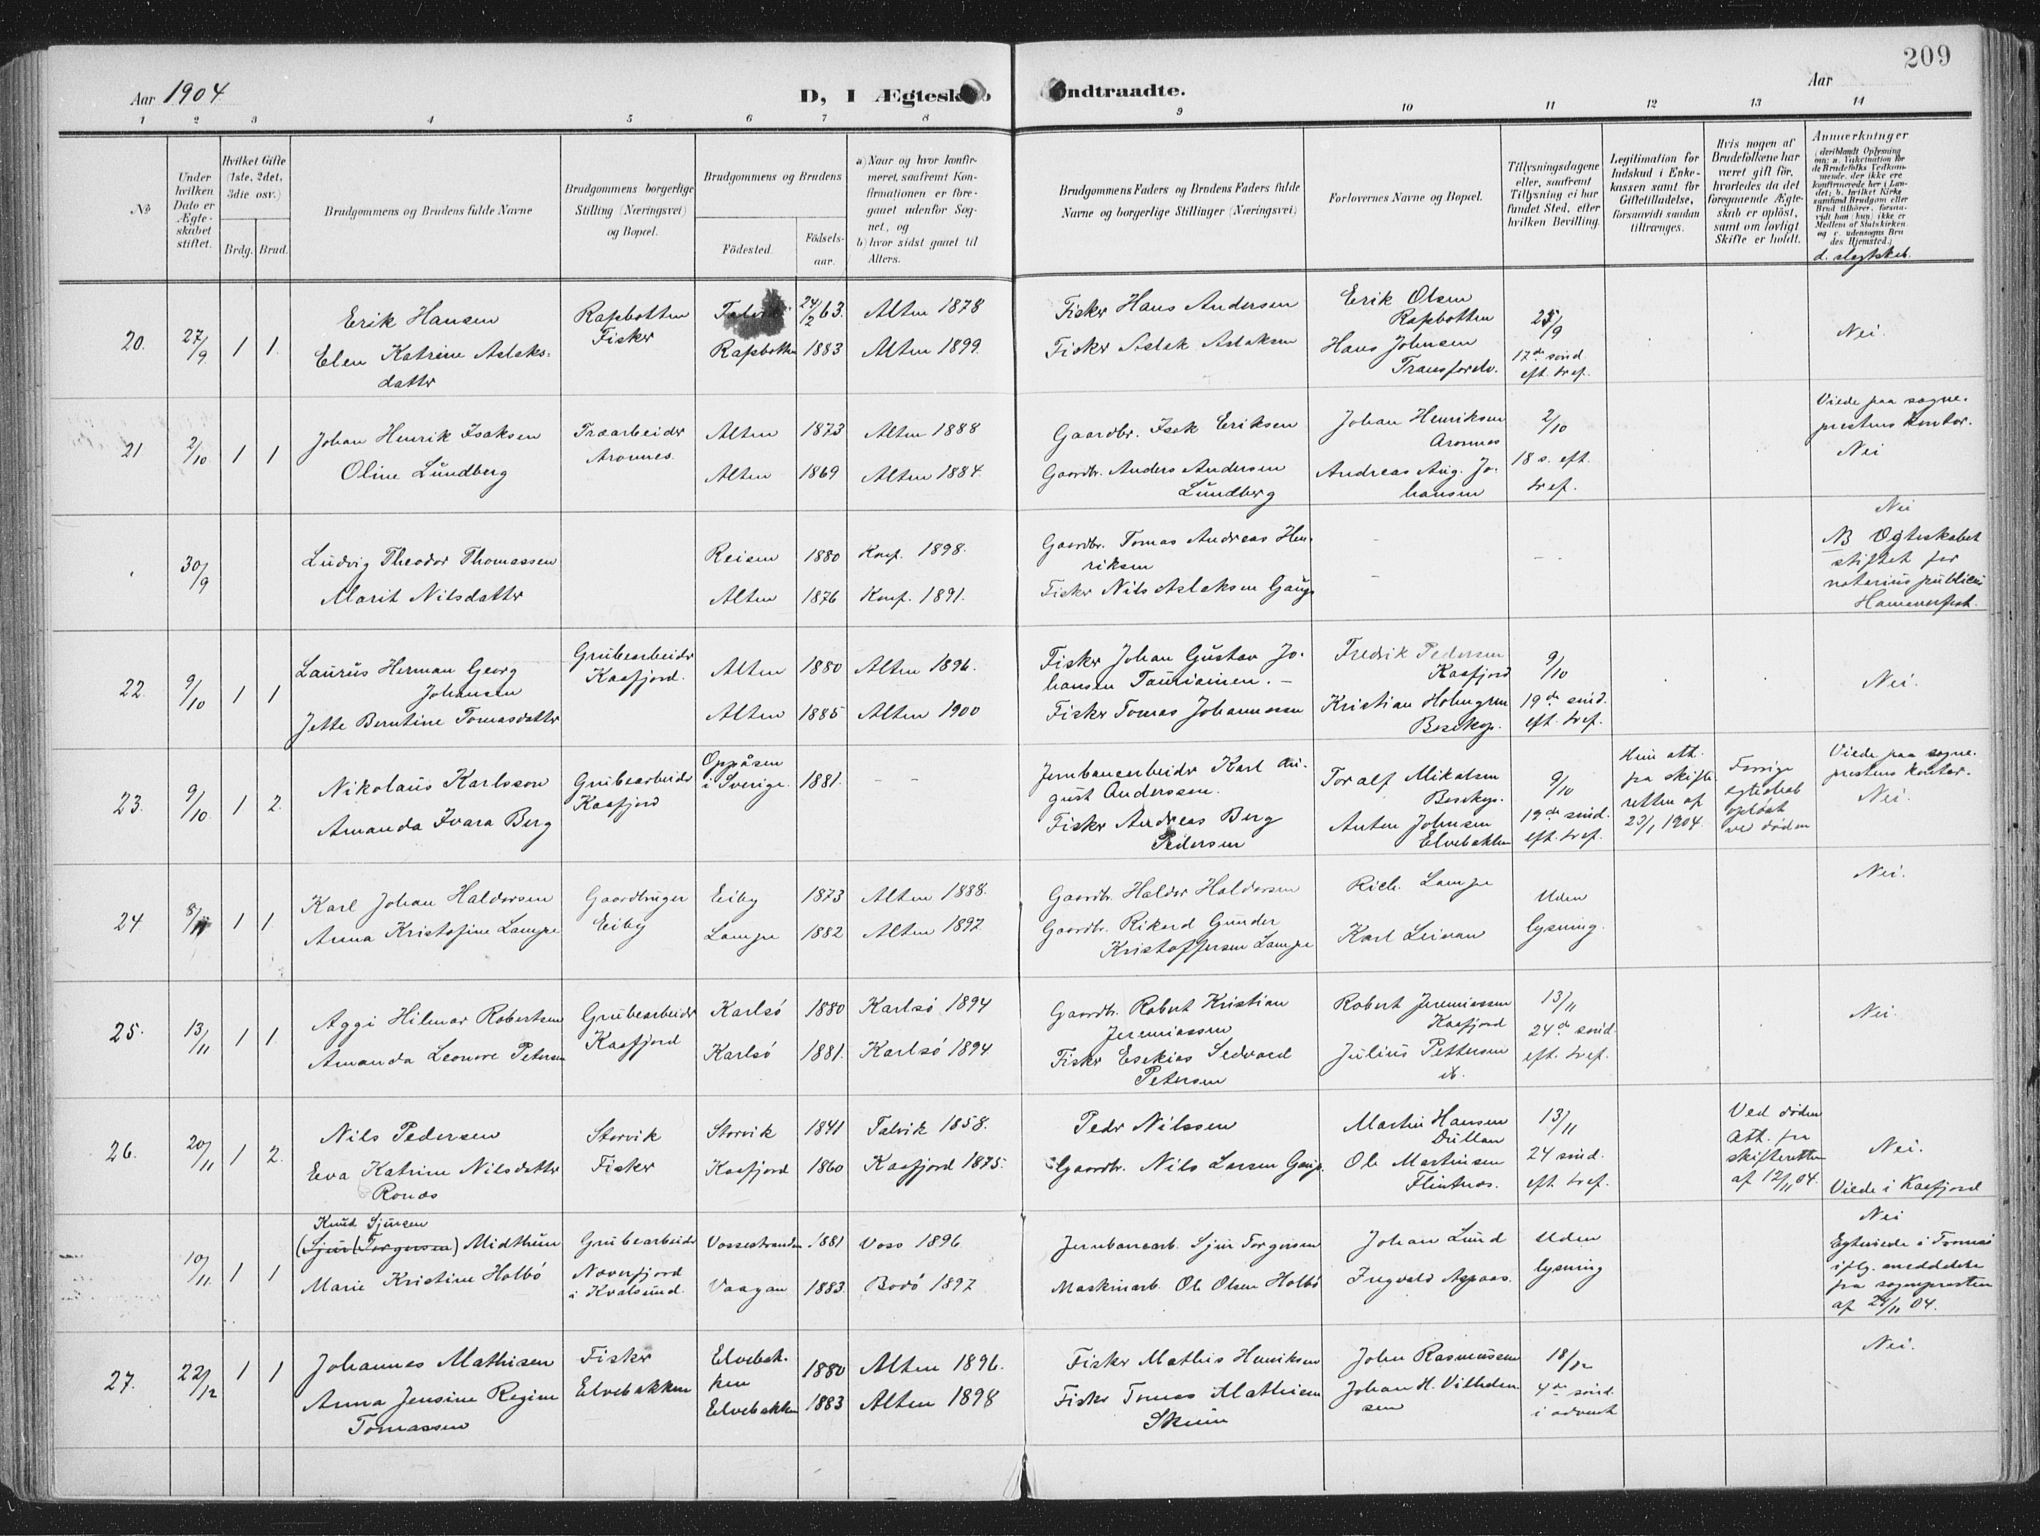 209
Aar 1904
D, I Ægteskab Indtraadte.
Aar
1 2 3 4 5 6 7 8 9 10 11 12 13 14
No
Under hvilken Dato er Ægteskabet stiftet.
Hvilket Gifte (1ste, 2det, 3die osv.)
Brdg. Brud.
Brudgommens og Brudens fulde Navne
Brudgommens borgerlige Stilling (Næringsvei) og Bopæl.
Brudgommens og Brudens
Födested. Födsels-aar.
a) Naar og hvor konfirmeret, saafremt Konfirmationen er foregaaet udenfor Sognet, og
b) hvor sidst gaaet til Alters.
Brudgommens Faders og Brudens Faders fulde Navne og borgerlige Stillinger (Næringsvei)
Forlovernes Navne og Bopæl.
Tillysningsdagene eller, saafremt Tillysning ei har fundet Sted, efter hvilken Bevilling.
Legitimation for Indskud i Enkekassen samt for Giftetilladelse, forsaavidt saadan tiltrænges.
Hvis nogen af Brudefolkene har været gift för, hvorledes da det foregaaende Ægteskab er oplöst, samt om lovligt Skifte er holdt.
Anmærkninger
d. slegtskab.
20. 27/9 1 1.
Erik Hansen
Elen Katrine Aslaks-
datter
Rafsbotten
Fisker
Talvik 24/2 63. Alten 1878
Rafsbotten 1883 Alten 1899.
Fisker Hans Andersen
Fisker Aslak Aslaksen
Erik Olsen
Rafsbotten
Hans Johnsen
Transfarelv.
25/9
17de sönd.
eft. tref.
Nei.
21 2/10 1 1
Johan Henrik Isaksen
Oline Lundberg
Træarbeider
Aronnes.
Alten 1873 Alten 1888
Alten 1869 Alten 1884.
Gaardbr. Isak Eriksen
Gaardbr. Anders Andersen
Lundberg
Johan Henriksen
Aronnes
Andreas Aug. Jo-
hansen
2/10
18 s. eft.
tref.
Viede paa sogne-
prestens kontor.
Nei
30/9
Ludvig Theodor Thomassen
Marit Nilsdatter
Reisen 1880 Konf. 1898.
Alten 1876 Konf. 1891.
Gaardbr. Tomas Andreas Hen-
riksen
Fisker Nils Aslaksen Gaup
Nei
NB Ægteskabet
stiftet for
notarius publicus
Hammerfest.
22. 9/10 1 1
Laurus Herman Georg
Johansen
Jette Berntine Tomasdatter
Grubearbeider
Kaafjord.
Alten 1880 Alten 1896.
Alten 1885 Alten 1900
Fisker Johan Gustav Jo-
hansen Tauriainen. –
Fisker Tomas Johannessen
Fredrik Pedersen
Kaafjord
Kristian Holmgren
Bosekop.
9/10
19de sönd.
eft. tref.
Nei.
23. 9/10 1 2.
Nikolaus Karlsson
Amanda Ivara Berg
Grubearbeider
Kaafjord
Oppåsen
i Sverige. 1881. – –
Jernbanearbeider Karl Au-
gust Anderssen.
Fisker Andreas Berg
Pedersen
Toralf Mikalsen
Bosekop.
Anton Johnsen
Elvebakken
9/10
19de sönd.
eft. tref.
Hun att.
fra skifte
retten af
23/1 1904.
Forrige
egteskab
oplöst
ved döden
Viede paa sogne-
prestens kontor.
Nei.
24. 8/11 1 1
Karl Johan Haldorsen
Anna Kristofine Lampe
Gaardbruger
Eiby
Eiby 1873 Alten 1888.
Lampe 1882 Alten 1897
Gaardbr. Haldor Haldorsen
Gaardbr. Rikard Gunder
Kristoffersen Lampe
Rich. Lampe
Karl Leinan
Uden
lysning.
Nei.
25. 13/11 1 1.
Aggi Hilmar Robertsen
Amanda Leonore Petersen
Grubearbeider
Kaafjord
Karlsö 1880 Karlsö 1894
Karlsö 1881. Karlsö 1894
Gaardbr. Robert Kristian
Jeremiassen
Fisker Esekias Sedvard
Petersen
Robert Jeremiassen
Kaafjord
Julius Pettersen
do.
13/11
24de sönd.
eft. tref.
Nei.
26. 20/11 1 2.
Nils Pedersen
Eva Katrine Nilsdatter
Ronæs
Storvik
Fisker
Storvik 1841 Talvik 1858.
Kaafjord 1860 Kaafjord 1875.
Peder Nilssen
Gaardbr. Nils Larsen Gaup.
Martin Hansen
Ole Martinsen
Flintnes.
13/11
24 sönd.
eft. tref.
Ved döden
Att. fra
skifteretten
af 12/11 04.
Nei.
Viede i Kaafjord
10/11 1 1
Knud Sjursen
(Sjur (Torgersen) Midthun
Marie Kristine Holbö
Grubearbeider
Næverfjord
i Kvalsund.
Vossestranden 1881 Voss 1896
Vaagan 1883 Bodö 1897
Jernbanearb. Sjur Torgersen
Maskinarb. Ole Olsen Holbö
Johan Lund
Ingvald Aspaas.
Uden
lysning
Nei
Egteviede i Tromsö
iflg. meddelelse
fra sognepresten
af 24/11 04.
27. 22/12 1 1
Johannes Mathisen
Anna Jensine Regine
Tomassen
Fisker
Elvebakken
Elvebak-
ken 1880 Alten 1896.
Elvebakken 1883 Alten 1898
Fisker Mathis Henriksen
Fisker Tomas Mathisen
Skum
John Rasmussen
Johan H. Vilhelm-
sen
18/12
4de sönd.
i advent
Nei.